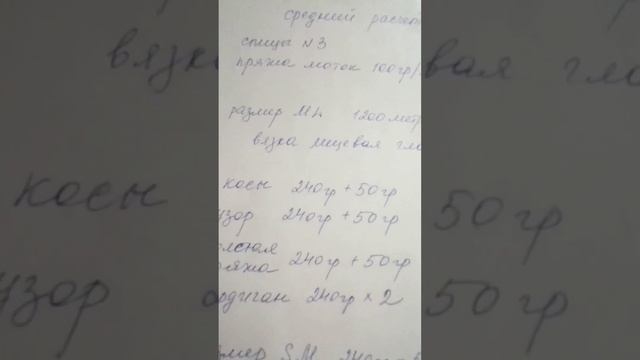 средний расчет
спицы N3
пряжа моток 100гр/
размер ML 1200метр
вязка лицевая гла
косы 240гр + 50гр
узор 240гр + 50гр
олстая
ряжа 240гр + 50гр
рдиган 240гр × 2
змер S.M. 240